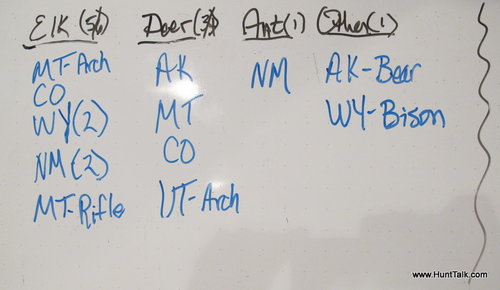 Elk Deer Ant(1) Other(1)
MT-Arch AK NM AK-Bear
CO MT WY-Bison
WY(2) CO
NM(2)
MT-Rifle UT-Arch
www.HuntTalk.com